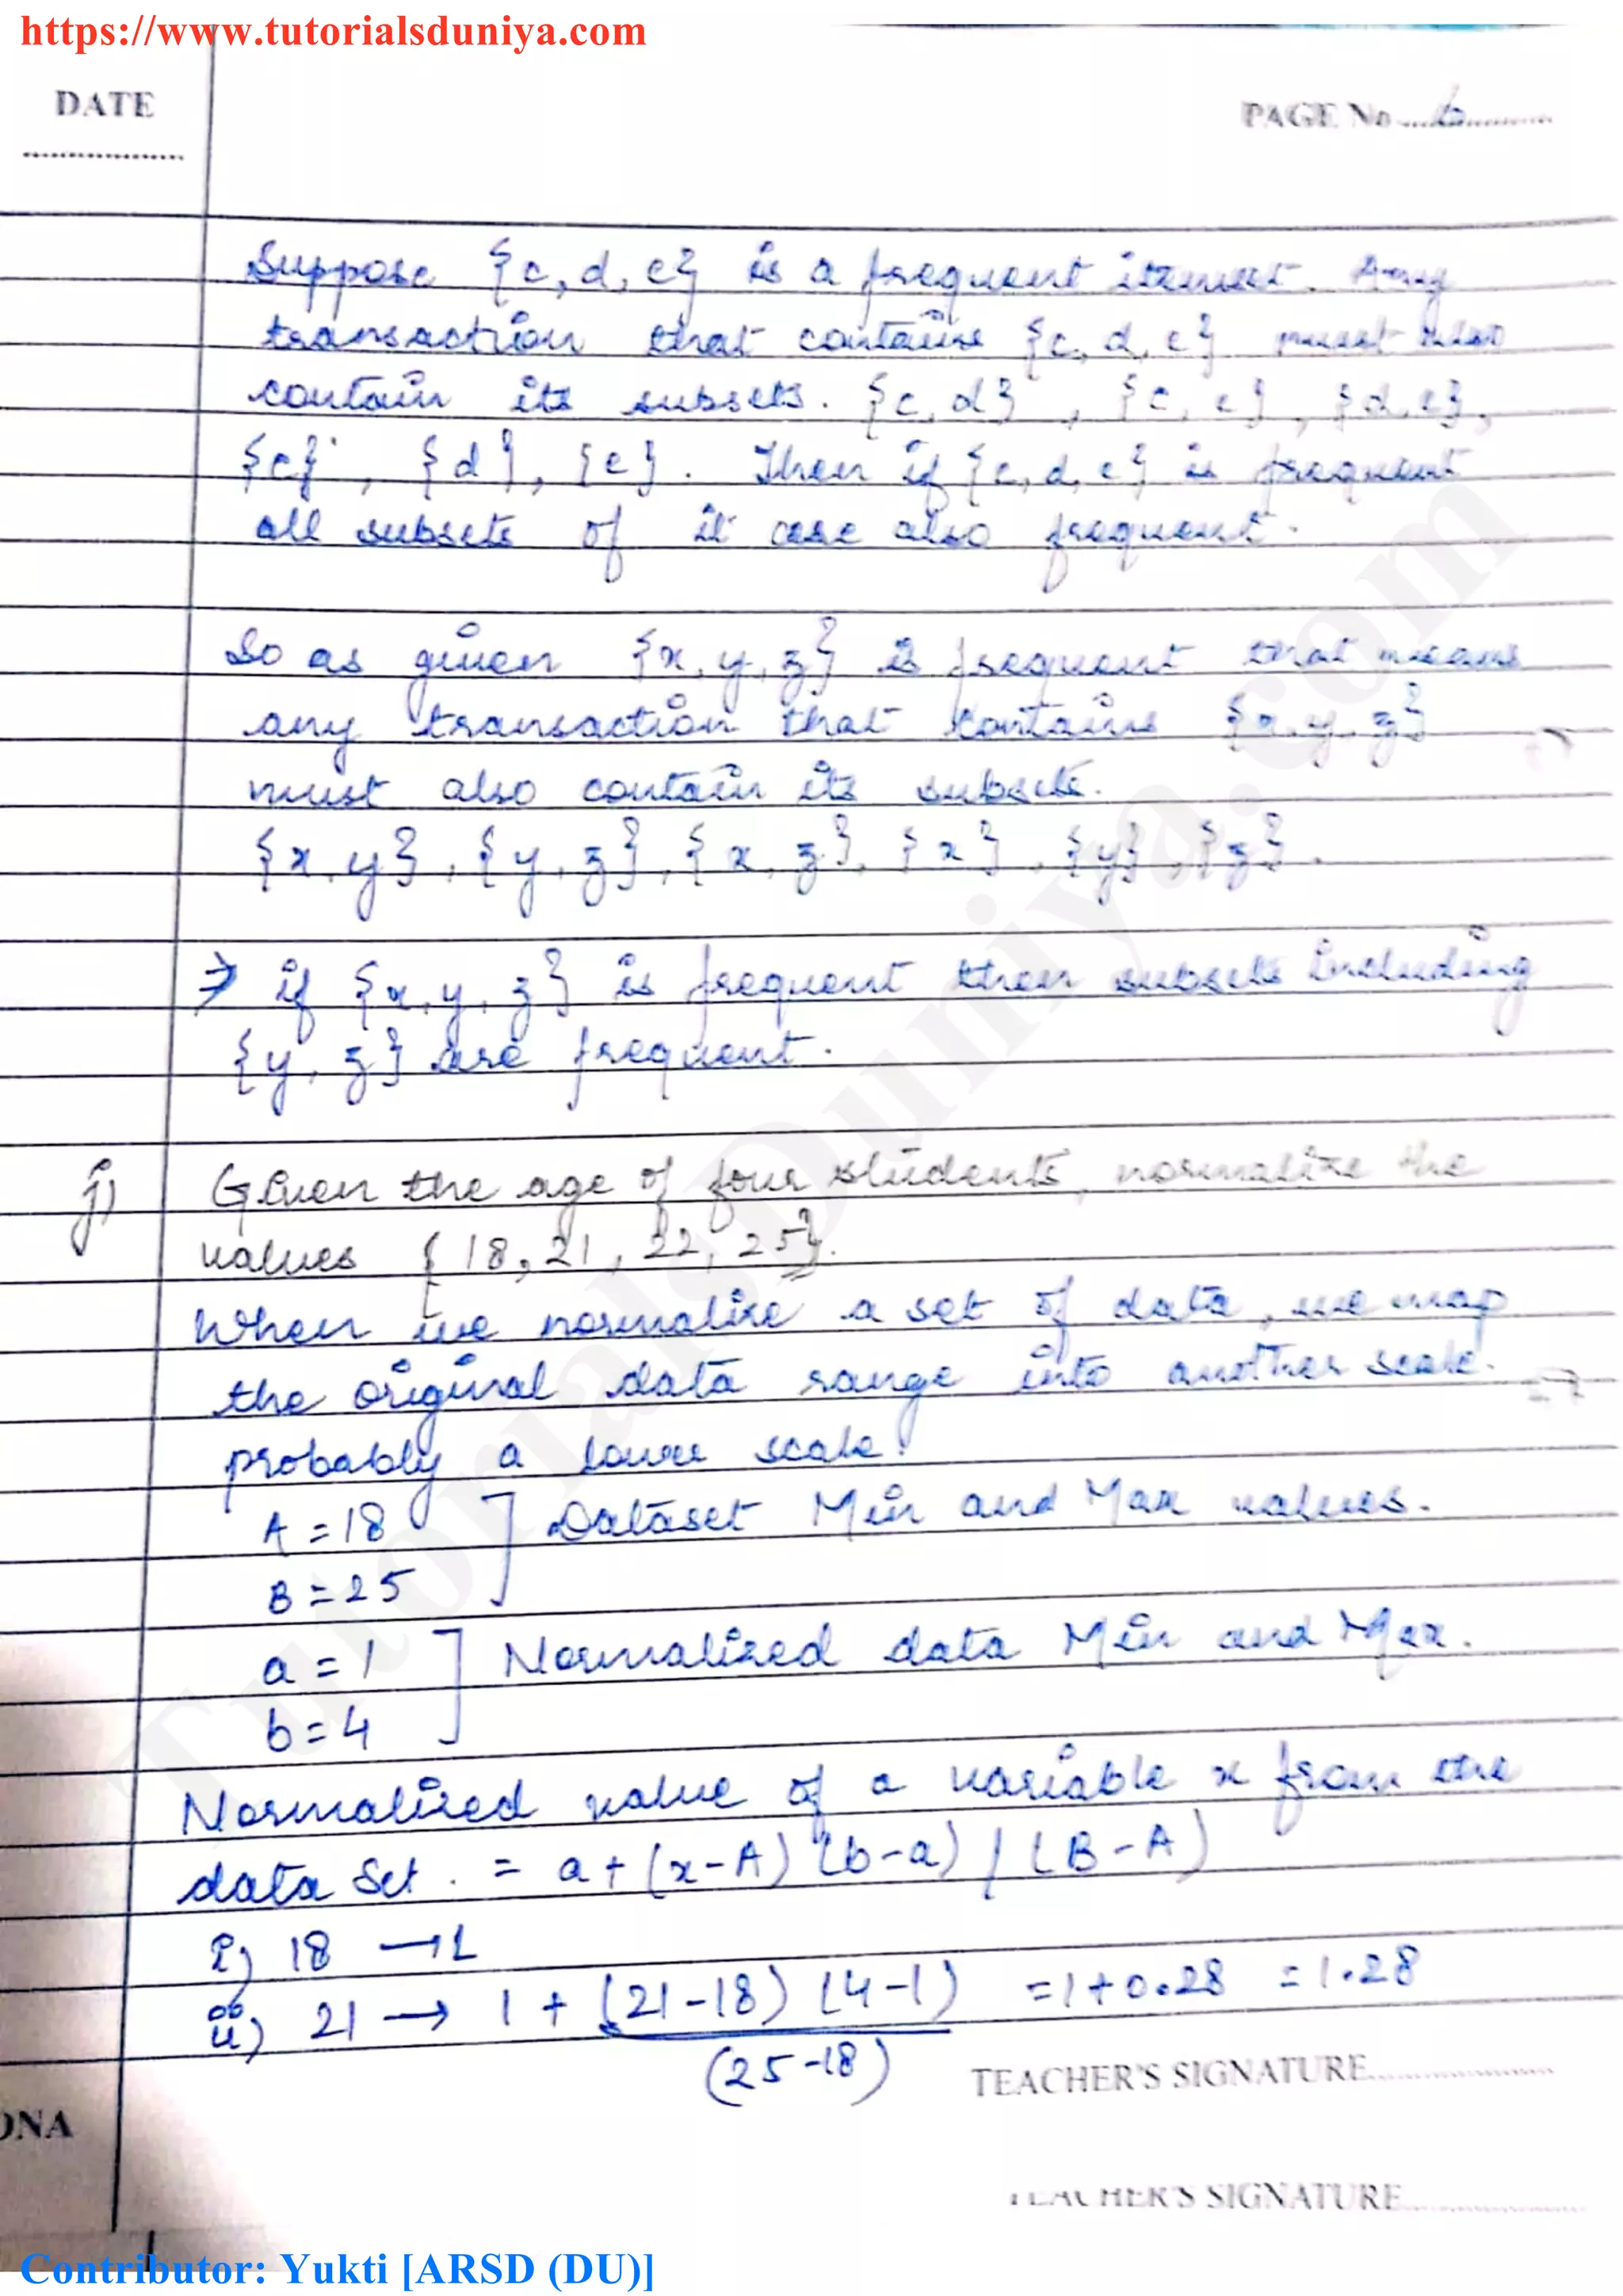 https://www.tutorialsduniya.com
DATE
PAGE No 6
Suppose {c, d, e} is a frequent itemset. Any
transaction that contains {c, d, e} must also
contain its subsets. {c, d} , {c, e} , {d, e},
{c} , {d}, {e}. Then if {c, d, e} is frequent
all subsets of it are also frequent.
So as given {x, y, z} is frequent that means
any transaction that contains {x, y, z}
must also contain its subsets.
{x, y}, {y, z}, {x, z}, {x}, {y}, {z}.
→ if {x, y, z} is frequent then subsets including
{y, z} are frequent.
j) Given the age of four students, normalize the
values {18, 21, 22, 25}.
When we normalize a set of data, we map
the original data range into another scale.
probably a lower scale.
A = 18 ] Dataset Min and Max values.
B = 25
a = 1 ] Normalized data Min and Max.
b = 4
Normalized value of a variable x from the
data set. = a + (x-A) (b-a) / (B-A)
i) 18 → 1
ii) 21 → 1 + (21-18) (4-1) = 1 + 0.28 = 1.28
(25-18)
TEACHER'S SIGNATURE
ONA
TEACHER'S SIGNATURE
TutorialsDuniya.com
Contributor: Yukti [ARSD (DU)]